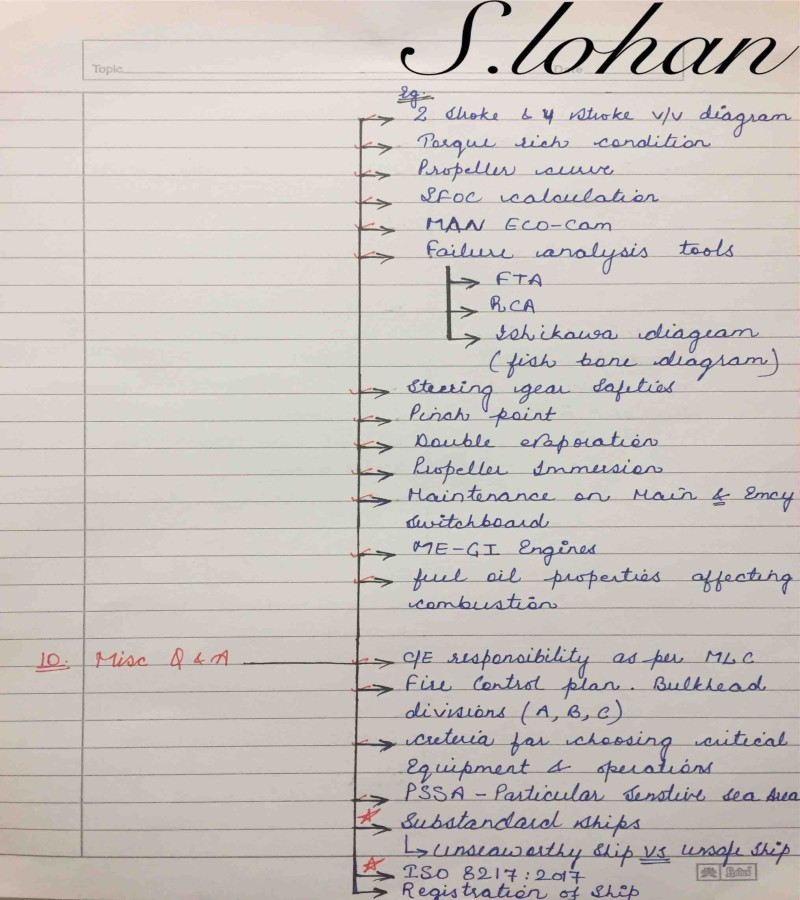 S.lohan
Topic
Date
Eg:
2 stroke & 4 stroke v/v diagram
Torque rich condition
Propeller curve
SFOC calculation
MAN ECO-Cam
Failure analysis tools
FTA
RCA
Ishikawa diagram
(fish bone diagram)
Steering gear Safeties
Pinch point
Double evaporation
Propeller Immersion
Maintenance on Main & Emcy
Switchboard
ME-GI Engines
fuel oil properties affecting
combustion
10. Misc Q & A
C/E responsibility as per MLC
Fire Control plan. Bulkhead
divisions (A, B, C)
creteria for choosing critical
Equipment & operations
PSSA - Particular Senstive sea Area
Substandard ships
Unseaworthy Ship VS Unsafe Ship
ISO 8217:2017
Registration of Ship